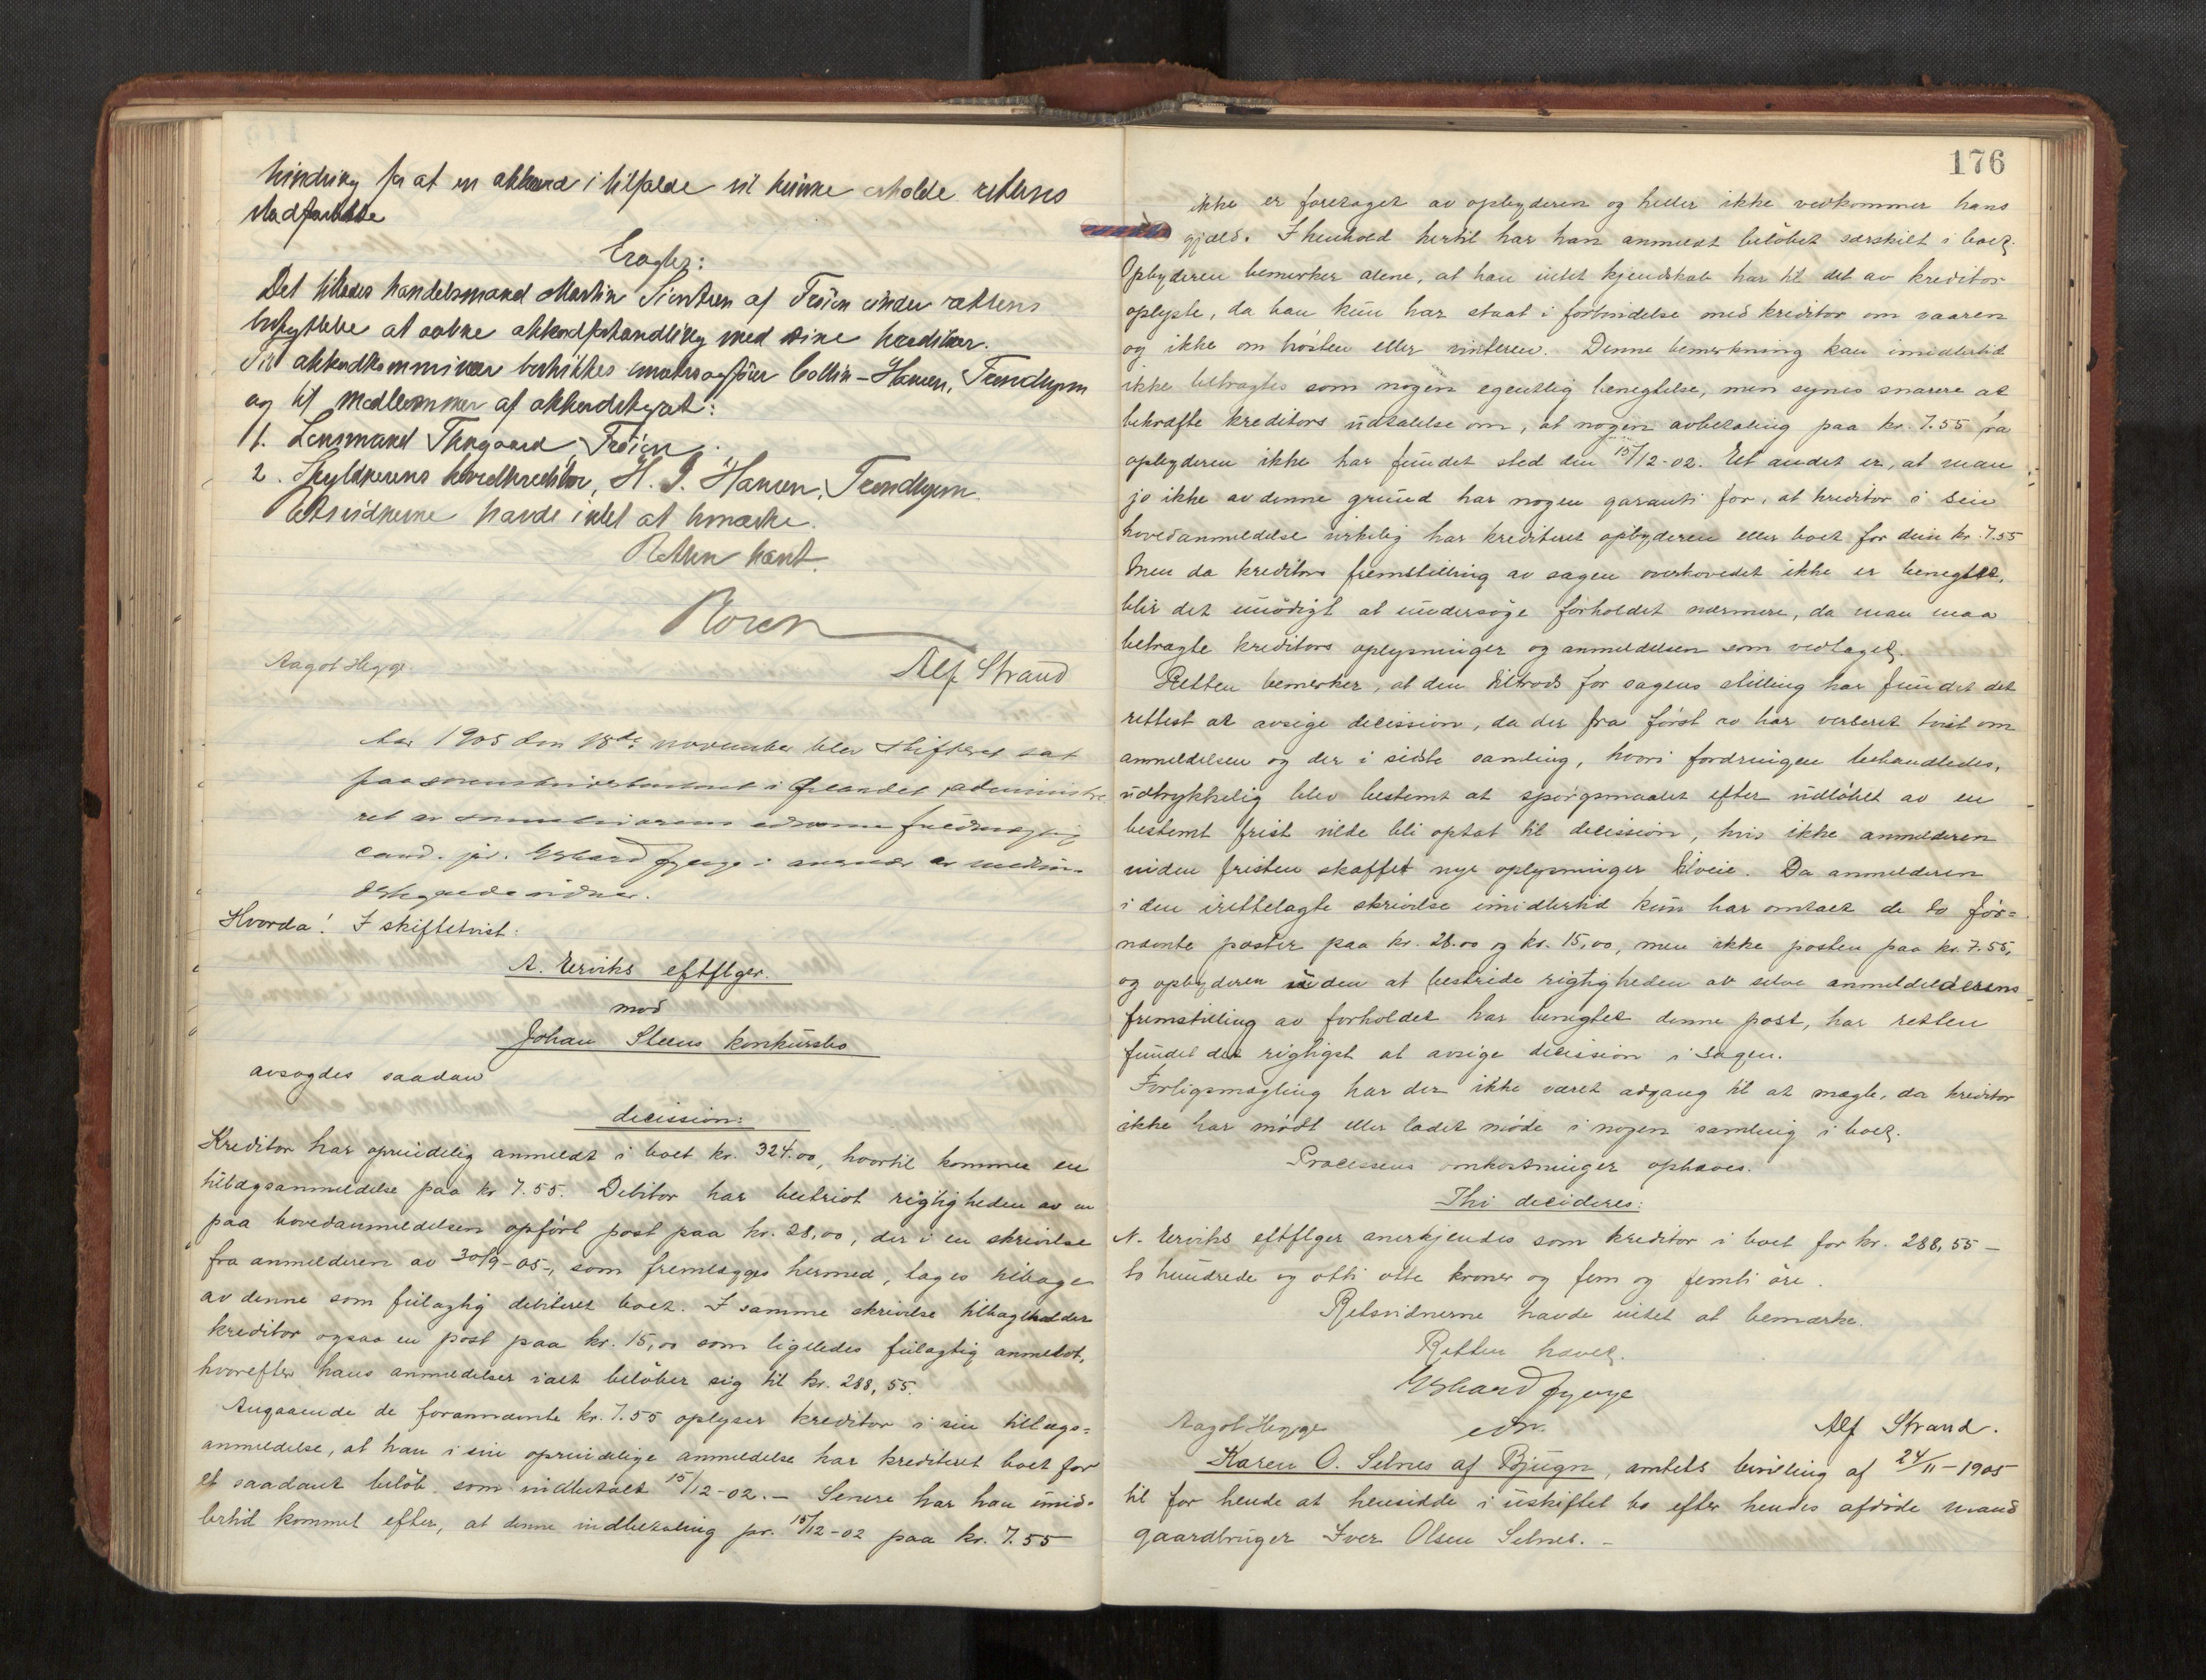 hindring for at en akkord i tilfælde vil kunne erholde rettens
stadfæstelse
Eragtes:
Det tillades handelsmand Martin af Frøien under rettens
beskyttelse at aabne akkordforhandling med sine kreditorer.
Til akkordkommissær beskikkes overretssagfører Collin-Hansen, Trondhjem
og til medlemmer af akkordstyret:
1. Lensmand Thingaard, Frøien.
2. Skyldnerens hovedkreditor, H. J. Hansen, Trondhjem.
Retsvidnerne havde intet at bemærke.
Retten hævet.
Roren
Aagot Hegge.
Alf Strand
Aar 1905 den 18de november blev skifteret sat
paa sorenskriverkontoret i Ørlandet, administre
ret av sorenskriverens edsvorne fuldmægtig
cand. jur. Erhard i nærvær av medun-
dertegnede vidner.
Hvorda! I skiftetvist:
A. Eerviks eftflger.
mod
Johan Steens konkursbo
avsagdes saadan
decission:
Kreditor har oprindelig anmeldt i boet kr. 324.00, hvortil kommer en
tillægsanmeldelse paa kr 7.55. Debitor har bestridt rigtigheden av en
paa hovedanmeldelsen opført post paa kr. 28,00, der i en skrivelse
fra anmelderen av 30/9-05-, som fremlægges hermed, tages tilbage
av denne som feilagtig debiteret boet. I samme skrivelse tilbageholder
kreditor ogsaa en post paa kr. 15,00 som ligeledes feilagtig anmeldt,
hvorefter hans anmeldelser ialt beløber sig til kr. 288,55.
Angaaende de forannævnte kr. 7.55 oplyser kreditor i sin tillægs=
anmeldelse, at han i sin oprindelige anmeldelse har krediteret boet for
et saadant beløb som indbetalt 15/12-02.- Senere har han imid-
lertid kommet efter, at denne indbetaling pr. 15/12-02 paa kr. 7.55
176
ikke er foretaget av opbyderen og heller ikke vedkommer hans
gjæld. I henhold hertil har han anmeldt beløbet særskilt i boet.
Opbyderen bemerker alene, at han intet kjendskab har til det av kreditor
oplyste, da han kun har staat i forbindelse med kreditor om vaaren
og ikke om høsten eller vinteren. Denne bemerkning kan imidlertid
ikke betragtes som nogen egentlig benegtelse, men synes snarere at
bekræfte kreditors udtalelse om, at nogen avbetaling paa kr. 7.55 fra
opbyderen ikke har fundet sted den 15/12-02. Et andet er, at man
jo ikke av denne grund har nogen garanti for, at kreditor i sin
hovedanmeldelse virkelig har krediteret opbyderen eller boet for dem kr. 7.55
Men da kreditors fremstilling av sagen overhovedet ikke er benegtet,
blir det unødigt at undersøge forholdet nærmere, da man maa
betragte kreditors oplysninger og anmeldelsen som vedtaget.
Retten bemerker, at den tiltrods for sagens stilling har fundet det
rettest at avsige decission, da der fra først av har verseret tvist om
anmeldelsen og der i sidste samling, hvori fordringen behandledes,
udtrykkelig blev bestemt at spørgsmaalet efter udløbet av en
bestemt frist vilde bli optat til decission, hvis ikke anmelderen
inden fristen skaffet nye oplysninger tilveie. Da anmelderen
i den irettelagte skrivelse imidlertid kun har omtalt de to før=
nævnte poster paa kr. 28.00 og kr. 15,00, men ikke posten paa kr. 7.55,
og opbyderen uden at bestride rigtigheden av selve anmelderens
fremstilling av forholdet har benegtet denne post, har retten
fundet det rigtigst at avsige decission i sagen.
Forligsmægling har der ikke været adgang til at mægle, da kreditor
ikke har mødt eller ladet møde i nogen samling i boet.
Processens omkostninger ophæves.
Thi decideres:
A. Eerviks eftflger anerkjendes som kreditor i boet for kr. 288,55 -
to hundrede og otti otte kroner og fem og femti øre.
Retsvidnerne havde intet at bemærke.
Retten hævet.
Erhard
edv.
Aagot Hegge
Alf Strand.
Karen O. Selnes af Bjugn, amtets bevilling af 24/11-1905
til for hende at hensidde i uskiftet bo efter hendes afdøde mand
gaardbruger Iver Olsen Selnes. -